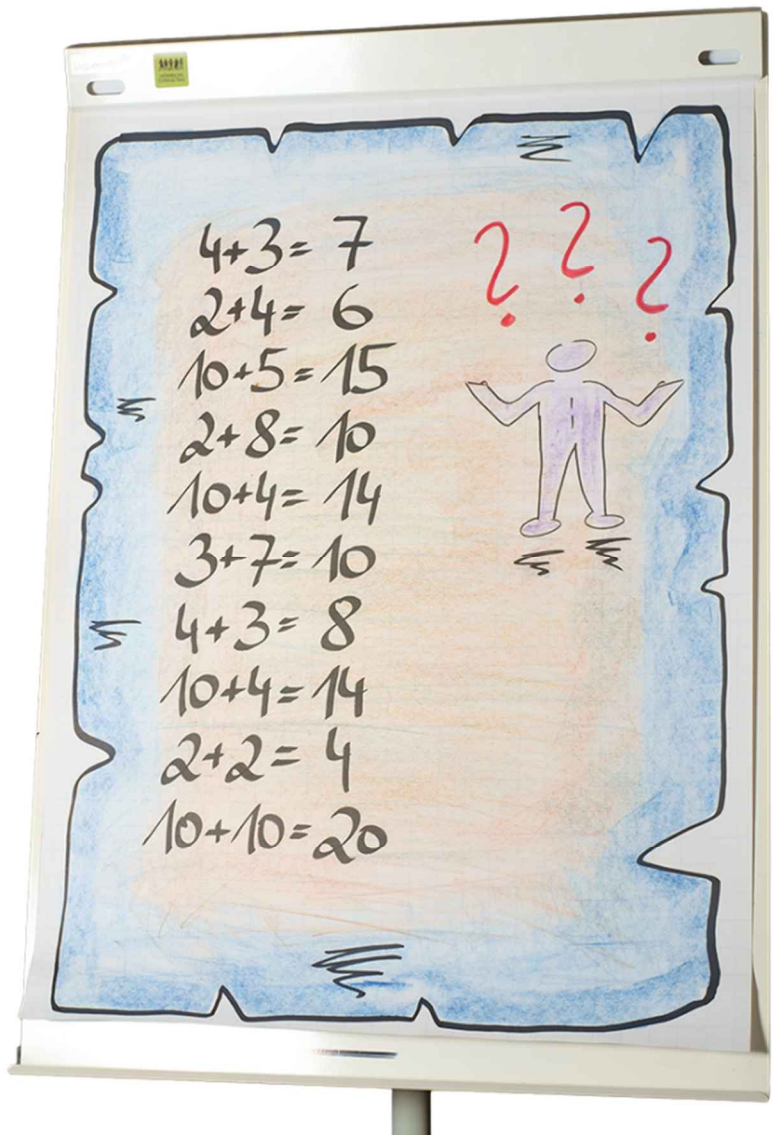 4+3= 7
2+4= 6
10+5= 15
2+8= 10
10+4= 14
3+7= 10
4+3= 8
10+4= 14
2+2= 4
10+10= 20
? ? ?